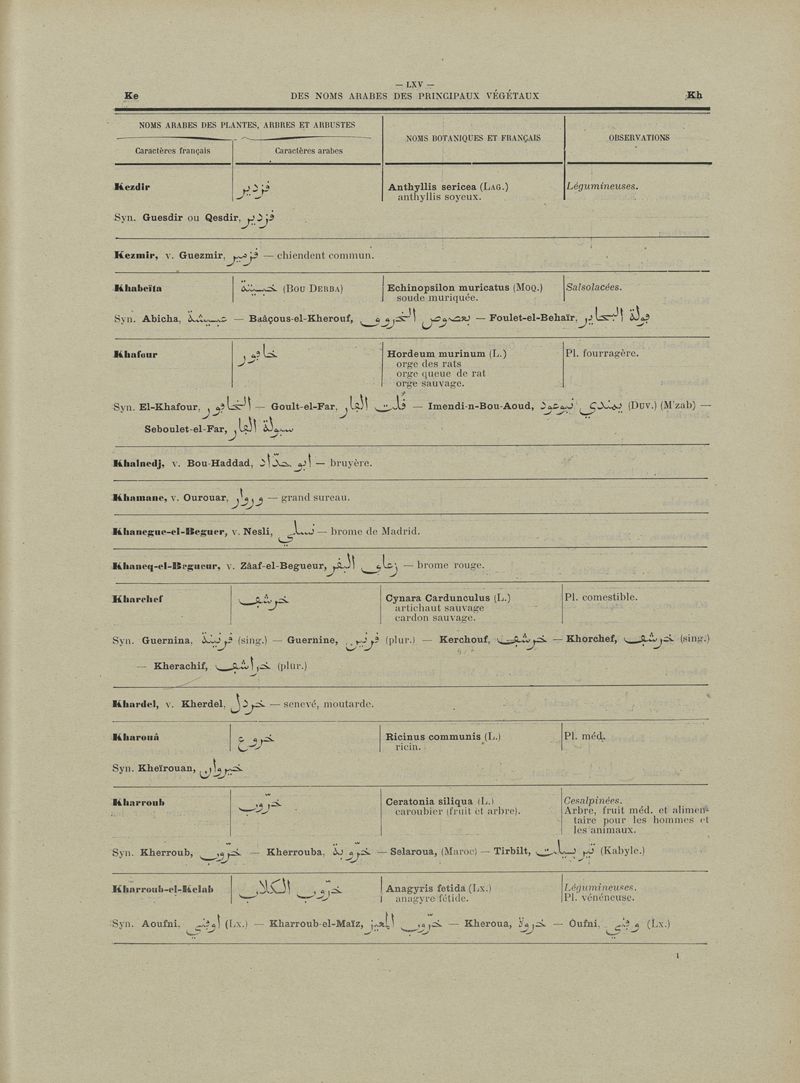 — LXV —
Ke DES NOMS ARABES DES PRINCIPAUX VÉGÉTAUX Kh
NOMS ARABES DES PLANTES, ARBRES ET ARBUSTES
NOMS BOTANIQUES ET FRANÇAIS
OBSERVATIONS
Caractères français Caractères arabes
Kezdir قزدير Anthyllis sericea (LAG.) Légumineuses.
anthyllis soyeux.
Syn. Guesdir ou Qesdir, قزدير
Kezmir, v. Guezmir, قزمير — chiendent commun.
Khabeïta خبيثة (BOU DERBA) Echinopsilon muricatus (MOQ.) Salsolacées.
soude muriquée.
Syn. Abicha, — Baâçous-el-Kherouf, — Foulet-el-Behaïr,
Khafour خافور Hordeum murinum (L.) Pl. fourragère.
orge des rats
orge queue de rat
orge sauvage.
Syn. El-Khafour, الخافور — Goult-el-Far, — Imendi-n-Bou-Aoud, (DUV.) (M'zab) —
Seboulet-el-Far, سبولة الفار
Khalnedj, v. Bou-Haddad, بو حداد — bruyère.
Khamane, v. Ourouar, — grand sureau.
Khanegue-el-Beguer, v. Nesli, نسلي — brome de Madrid.
Khaneq-el-Begueur, v. Zâaf-el-Begueur, — brome rouge.
Kharchef خرشف Cynara Cardunculus (L.) Pl. comestible.
artichaut sauvage
cardon sauvage.
Syn. Guernina, قرنينة (sing.) — Guernine, قرنين (plur.) — Kerchouf, خرشف — Khorchef, خرشف (sing.)
— Kherachif, خراشف (plur.)
Khardel, v. Kherdel, خردل — senevé, moutarde.
Kharouâ خروع Ricinus communis (L.) Pl. méd.
ricin.
Syn. Kheïrouan, خيروان
Kharroub خروب Ceratonia siliqua (L.) Cesalpinées.
caroubier (fruit et arbre). Arbre, fruit méd. et alimen-
taire pour les hommes et
les animaux.
Syn. Kherroub, خروب — Kherrouba, خروبة — Selaroua, (Maroc) — Tirbilt, (Kabyle.)
Kharroub-el-Kelab خروب الكلاب Anagyris fetida (LX.) Légumineuses.
anagyre fétide. Pl. vénéneuse.
Syn. Aoufni, اوفني (LX.) — Kharroub-el-Maïz, خروب المعيز — Kheroua, — Oufni, وفني (LX.)